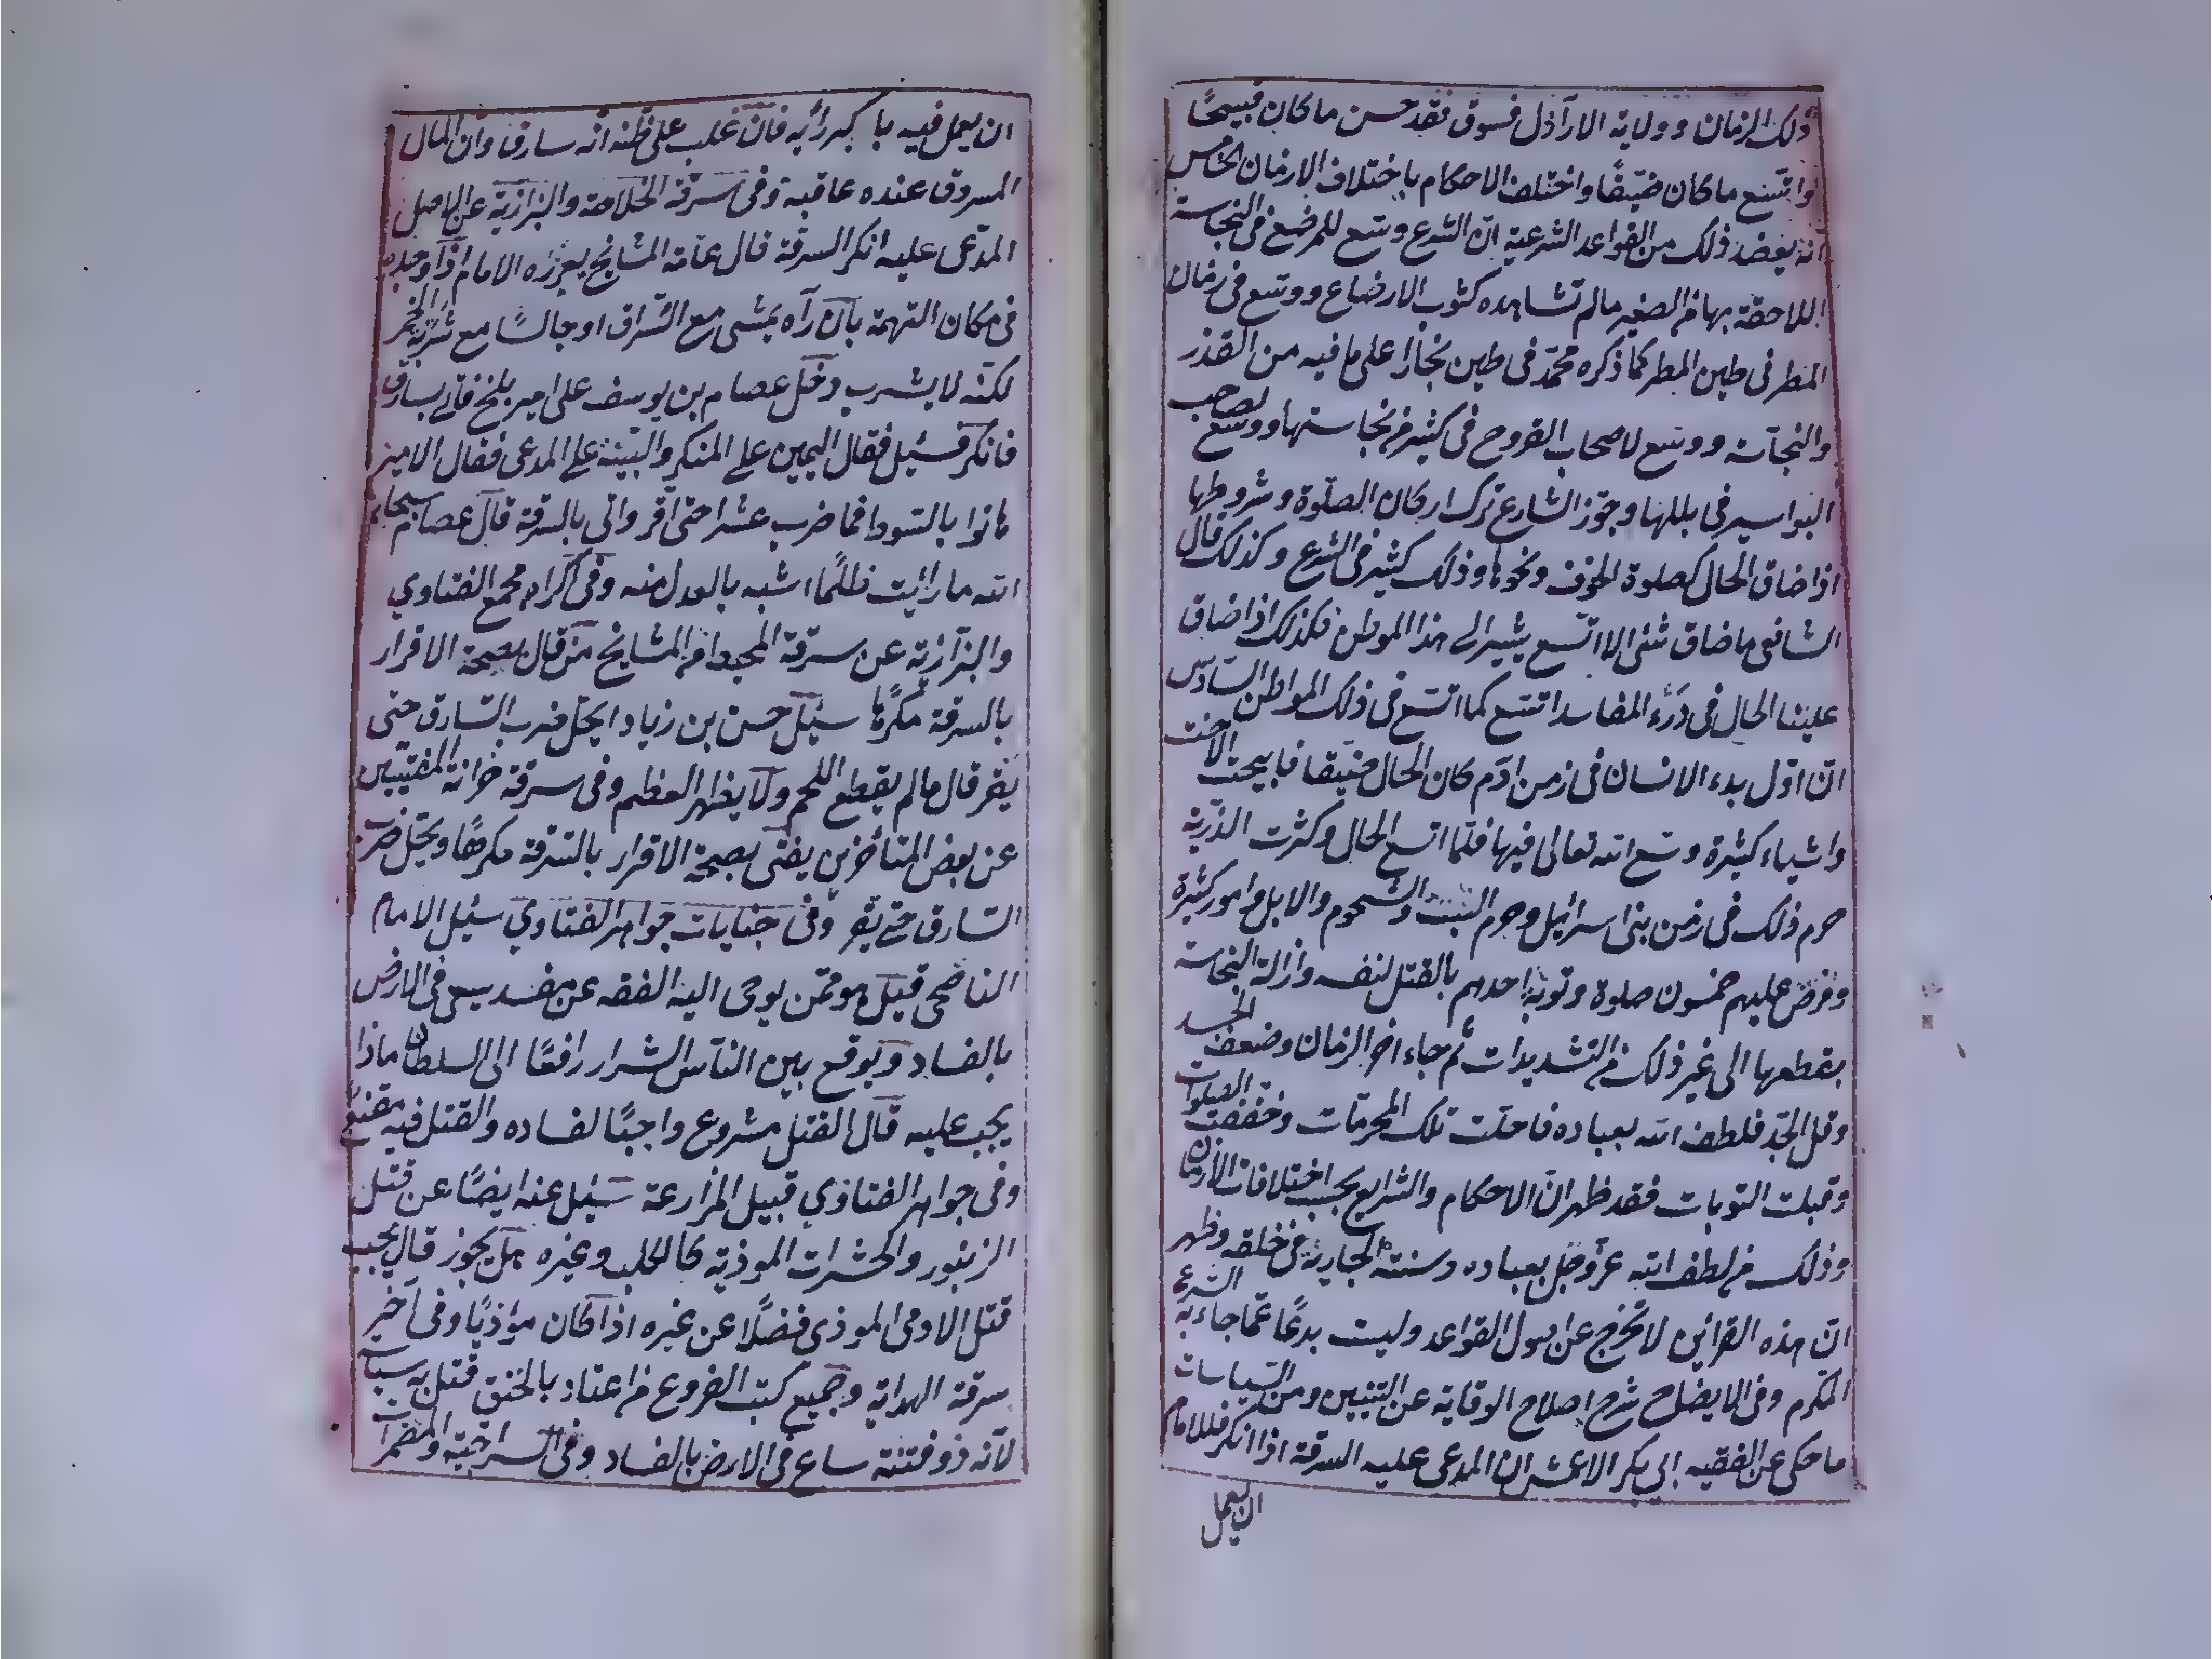 ذلك الزمان وولاية الاراذل فسوق فقد حسن ما كان قبيحًا
واتسع ما كان ضيّقًا واختلف الاحكام باختلاف الازمان الخامس
انه يعضد ذلك من القواعد الشرعية ان الشرع وسع للمرضع في النجاسة
اللاحقة بها من الصغير مالم تشاهده كثوب الارضاع ووسع في زمان
المطر في طين المطر كما ذكره محمّد في طين بخارا على ما فيه من القذر
والنجاسة ووسع لاصحاب القروح في كثير من نجاستها ووسع لصاحب
البواسير في بللها وجوّز الشارع ترك اركان الصلوة وشروطها
اذا ضاق الحال كصلوة الخوف ونحوها وذلك كثير في الشرع وكذلك قال
الشافعي ما ضاق شئ الا اتسع يشير الى هذا الموطن فكذلك اذا ضاق
علينا الحال في درء المفاسد اتسع كما اتسع في ذلك المواطن السادس
ان اوّل بدء الانسان في زمن ادم كان الحال ضيقا فابيحت الاخت
واشياء كثيرة وسع الله تعالى فيها فلمّا اتسع الحال وكثرت الذرّية
حرم ذلك في زمن بنى اسرائيل وحرم السبت والشحوم والابل وامور كثيرة
وفرض عليهم خمسون صلوة وتوبة احدهم بالقتل لنفسه وازالة النجاسة
بقطعها الى غير ذلك من التشديدات ثم جاء اخر الزمان وضعف الجسد
وقل الجلد فلطف الله بعباده فاحلت تلك المحرمات وخففت الصلوات
وقبلت التوبات فقد ظهر انّ الاحكام والشرايع بحسب اختلافات الازمان
وذلك من لطف الله عزّ وجل بعباده وسنته الجارية في خلقه وظهر
انّ هذه القرائن لا تخرج عن اصول القواعد وليست بدعًا عمّا جاء به الشرع
المكرم وفي الايضاح شرح اصلاح الوقاية عن التبيين ومن السياسات
ما حكى عن الفقيه ابى بكر الاعمش ان المدعى عليه السرقة اذا انكر فللامام
ان يعمل
ان يعمل فيه باكبر رأيه فان غلب على ظنه انه سارق وان المال
المسروق عنده عاقبه وفي سرقة الخلاصة والبزازية عن الاصل
المدّعى عليه انكر السرقة قال عامّة المشايخ يعزره الامام اذا وجده
في مكان التهمة بان رآه يمشى مع السّراق او جالسًا مع شربة الخمر
لكنّه لا يشرب دخل عصام بن يوسف على امير بلخ فاتى بسارق
فانكر فسئل فقال اليمين على المنكر والبيّنة على المدعى فقال الامير
هاتوا بالسوط فما ضرب عشرا حتى اقر واتى بالسرقة قال عصام سبحان
الله ما رايت ظلمًا اشبه بالعدل منه وفي اكراه مجمع الفتاوي
والبزازية عن سرقة المحيط من المشايخ من قال بصحة الاقرار
بالسرقة مكرها سئل حسن بن زياد ايحل ضرب السّارق حتى
يقر قال مالم يقطع اللحم ولا يظهر العظم وفي سرقة خزانة المفتيين
عن بعض المتأخرين يفتى بصحة الاقرار بالسّرقة مكرهًا ويحل ضرب
السّارق حتى يقر وفي جنايات جواهر الفتاوي سئل الامام
الناصحي قيل هو ممّن يوحى اليه الفقه عن مفسد يسعى في الارض
بالفساد ويوقع بين الناس الشرار رافعًا الى السلطان ماذا
يجب عليه قال القتل مشروع واجبًا لفساده والقتل فيه مقنع
وفي جواهر الفتاوي قبيل المزارعة سئل عنه ايضًا عن قتل
الزنبور والحشرات الموذية كالكلب وغيره هل يجوز قال يجب
قتل الادمى الموذى فضلًا عن غيره اذا كان مؤذيًا وفي اخر
سرقة الهداية وجميع كتب الفروع من اعتاد بالخنق قتل به سياسة
لانّه ذو فتنة ساع في الارض بالفساد وفي السراجية والمضمرات